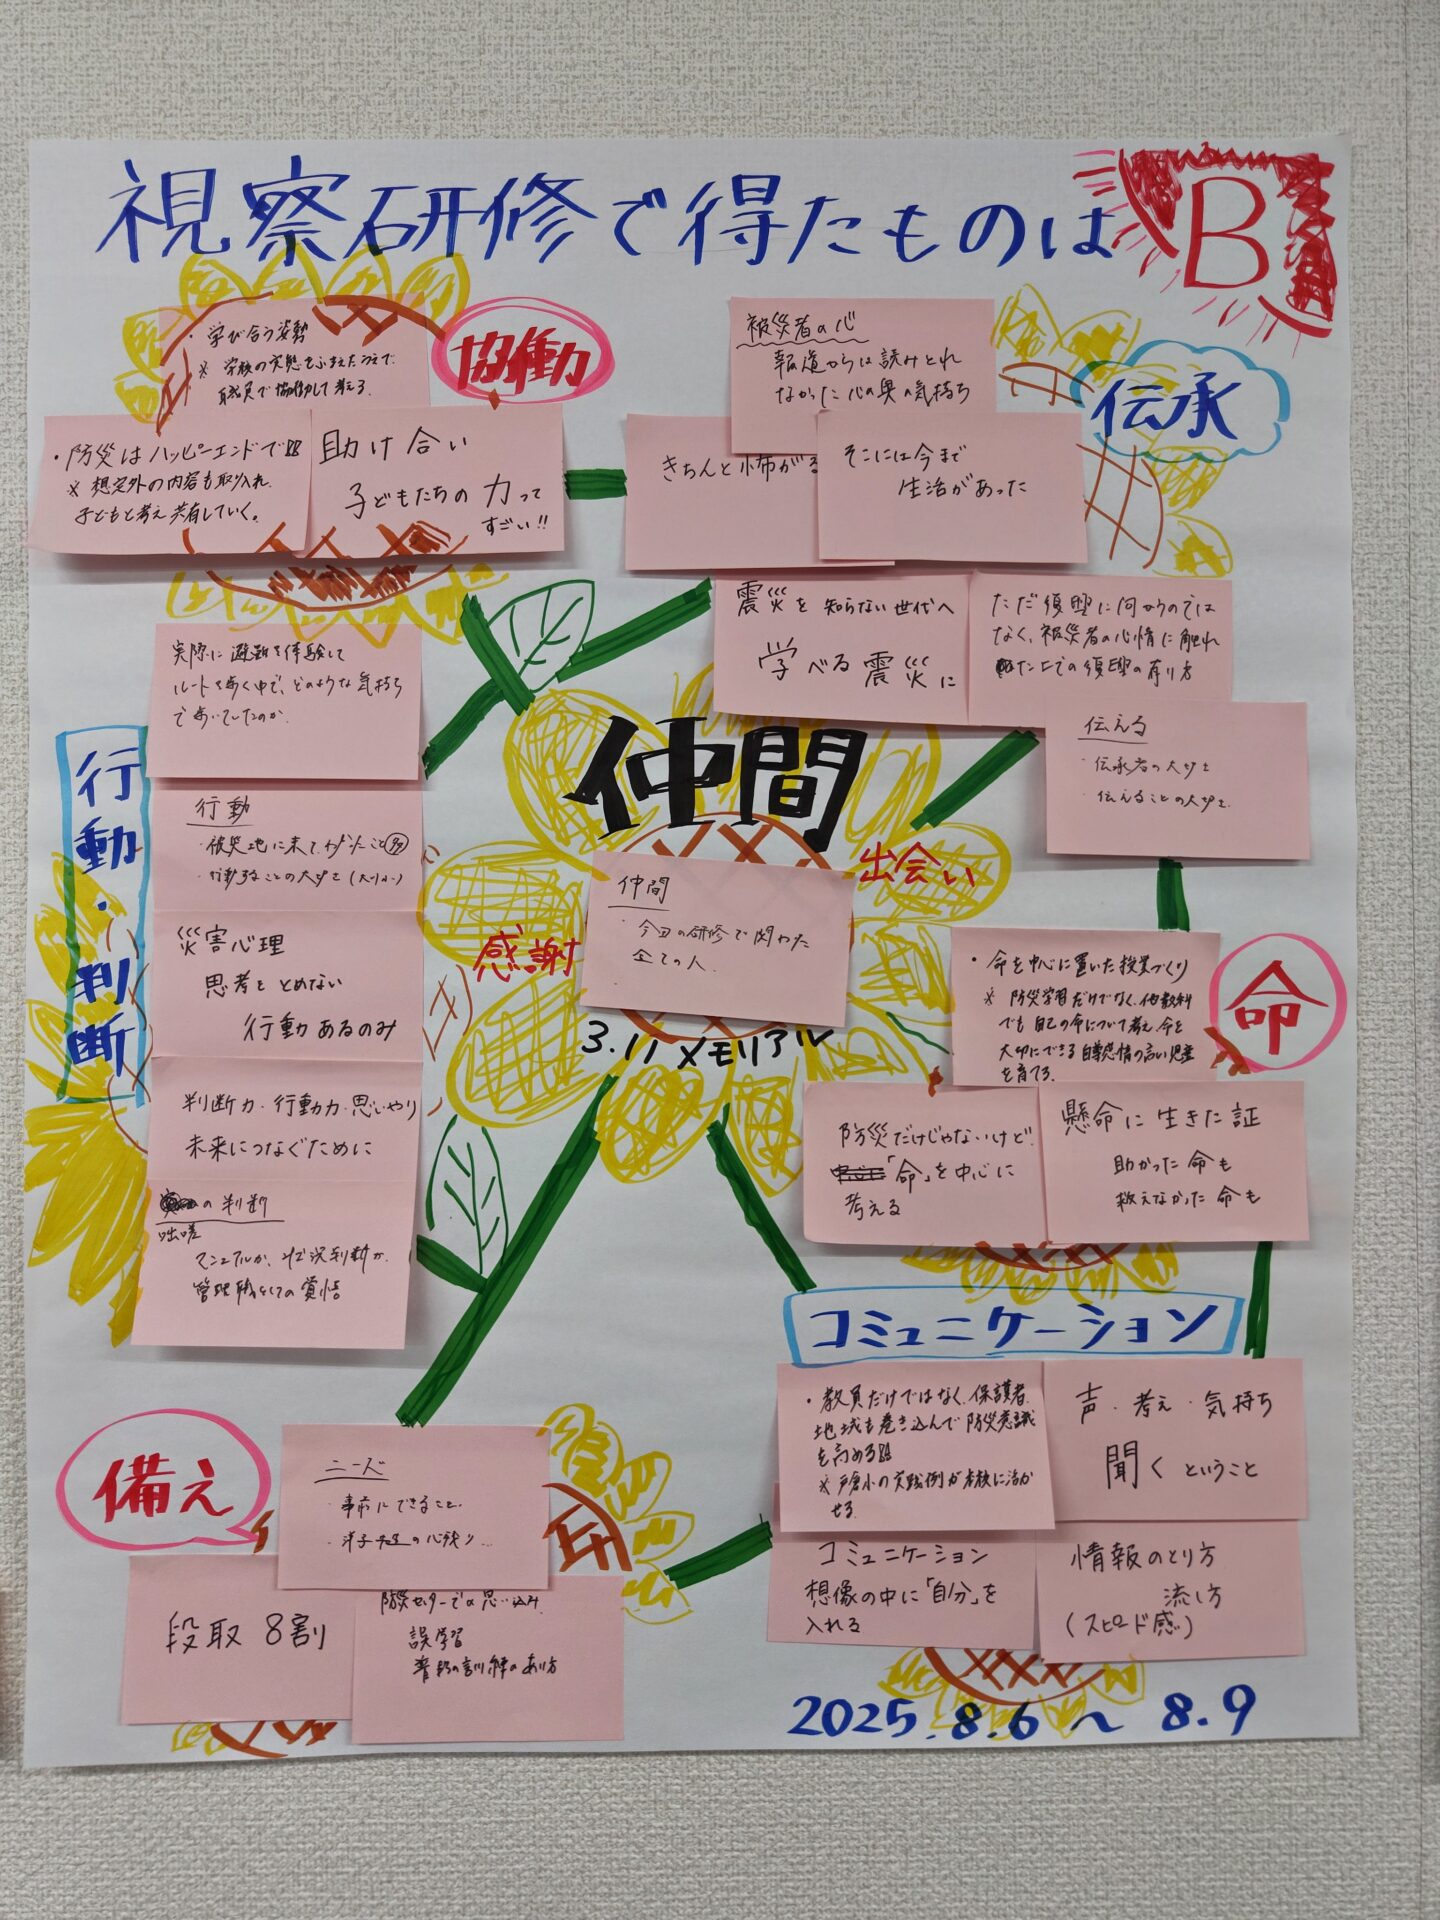 視察研修で得たものは
B
協働
・学び合う姿勢
※ 学校の実態をふまえたうえで、
職員で協働して考える。
・防災はハッピーエンドで
※ 想定外の内容も取り入れ、
子どもと考え共有していく。
助け合い
子どもたちの力って
すごい!!
伝承
被災者の心
報道からは読みとれ
なかった心の奥の気持ち
きちんと怖がる
そこには今まで
生活があった
震災を知らない世代へ
学べる震災に
ただ復興に向かうのでは
なく、被災者の心情に触れ
た上での復興の有り方
伝える
・伝承者の大切さ
・伝えることの大切さ
行動・判断
実際に避難を体験して
ルートを歩く中で、どのような気持ち
で歩いていたのか。
行動
・被災地に来てわかったこと多
・行動することの大切さ
災害心理
思考をとめない
行動あるのみ
判断力・行動力・思いやり
未来につなぐために
の判断
咄嗟
マニュアルか、状況判断か、
管理職としての覚悟
仲間
出会い
感謝
仲間
・今回の研修で関わた
全ての人
3.11メモリアル
命
・命を中心に置いた授業づくり
※ 防災学習だけでなく、他教科
でも自己の命について考え、命を
大切にできる自尊感情の高い児童
を育てる。
防災だけじゃないけど
「命」を中心に
考える
懸命に生きた証
助かった命も
救えなかった命も
コミュニケーション
・教員だけではなく、保護者、
地域も巻き込んで防災意識
を高める
※ 戸倉小の実践例が本校に活か
せる
声・考え・気持ち
聞くということ
コミュニケーション
想像の中に「自分」を
入れる
情報のとり方
流し方
(スピード感)
備え
ニーズ
・事前にできること
・洋子先生の心残り…
段取8割
防災センターでの思い込み
誤学習
普段の訓練のあり方
2025.8.6〜8.9